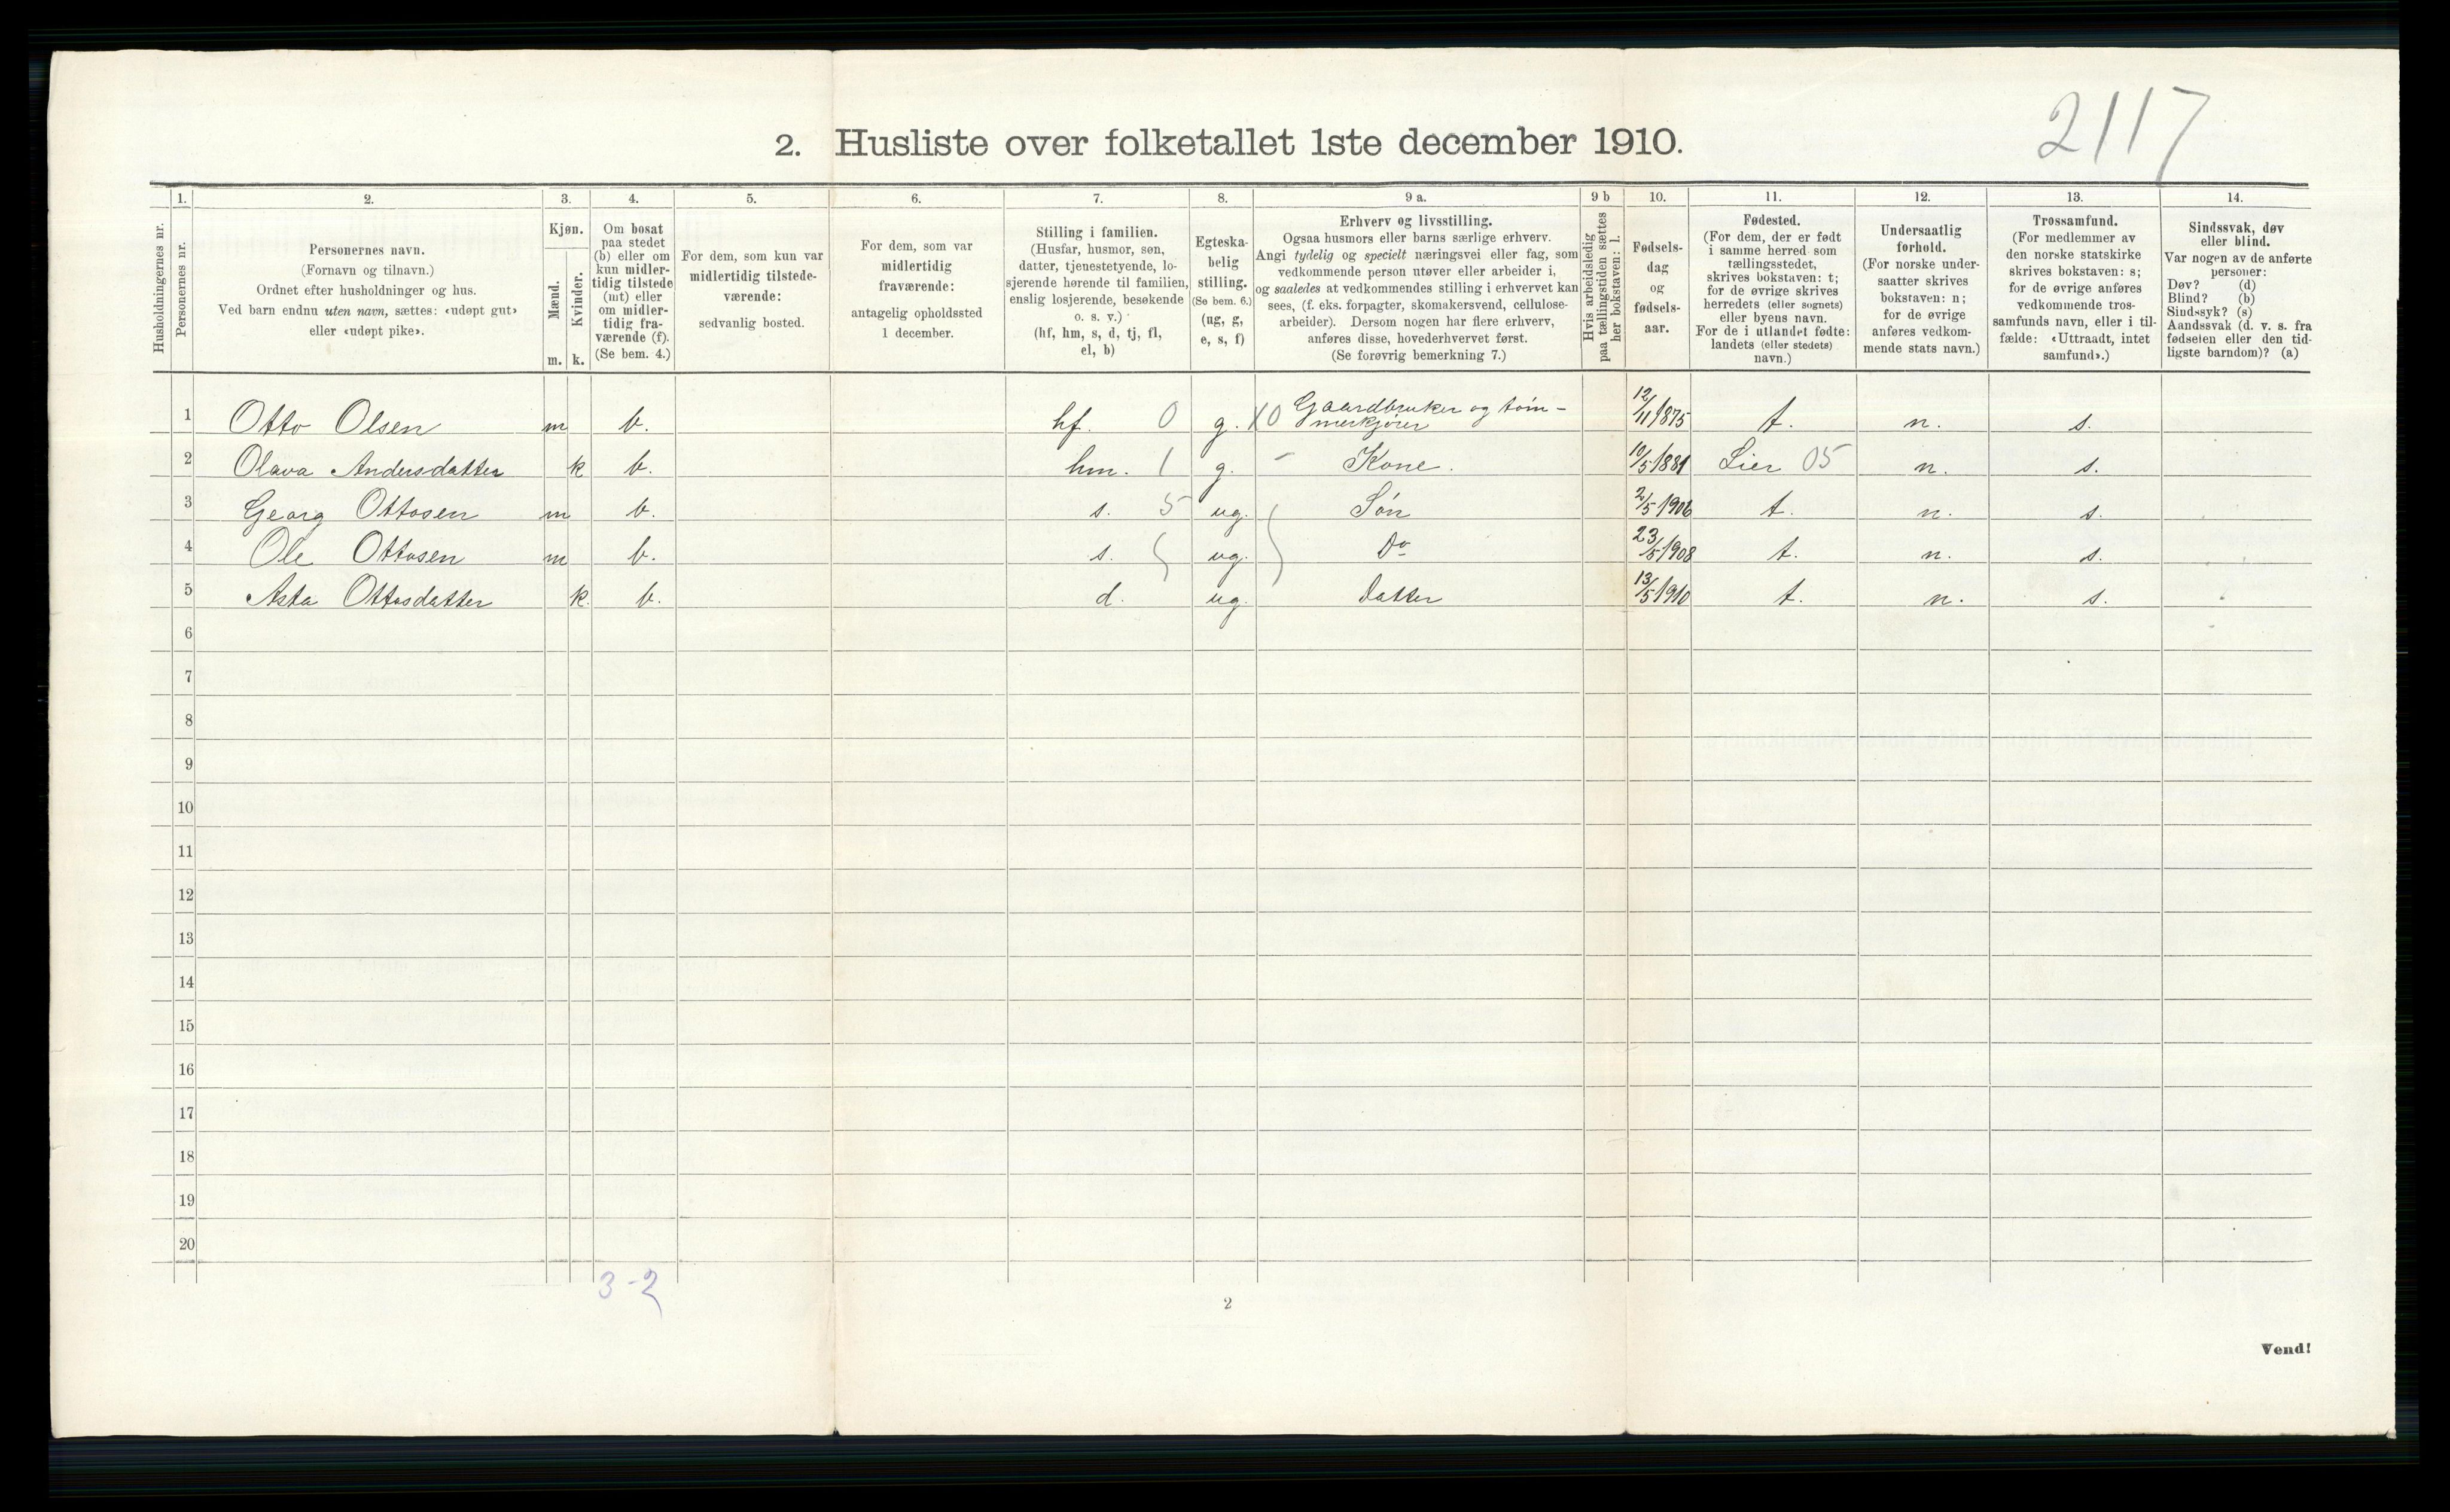 2117
2. Husliste over folketallet 1ste december 1910.
Husholdningernes nr.
1.
Personernes nr.
2.
Personernes navn.
(Fornavn og tilnavn.)
Ordnet efter husholdninger og hus.
Ved barn endnu uten navn, sættes: «udøpt gut»
eller «udøpt pike».
3.
Kjøn.
Mænd.
m.
Kvinder.
k.
4.
Om bosat
paa stedet
(b) eller om
kun midler-
tidig tilstede
(mt) eller
om midler-
tidig fra-
værende (f).
(Se bem. 4.)
5.
For dem, som kun var
midlertidig tilstede-
værende:
sedvanlig bosted.
6.
For dem, som var
midlertidig
fraværende:
antagelig opholdssted
1 december.
7.
Stilling i familien.
(Husfar, husmor, søn,
datter, tjenestetyende, lo-
sjerende hørende til familien,
enslig losjerende, besøkende
o. s. v.)
(hf, hm, s, d, tj, fl,
el, b)
8.
Egteska-
belig
stilling.
(Se bem. 6.)
(ug, g,
e, s, f)
9 a.
Erhverv og livsstilling.
Ogsaa husmors eller barns særlige erhverv.
Angi tydelig og specielt næringsvei eller fag, som
vedkommende person utøver eller arbeider i,
og saaledes at vedkommendes stilling i erhvervet kan
sees, (f. eks. forpagter, skomakersvend, cellulose-
arbeider). Dersom nogen har flere erhverv,
anføres disse, hovederhvervet først.
(Se forøvrig bemerkning 7.)
9 b
Hvis arbeidsledig
paa tællingstiden sættes
her bokstaven: l.
10.
Fødsels-
dag
og
fødsels-
aar.
11.
Fødested.
(For dem, der er født
i samme herred som
tællingsstedet,
skrives bokstaven: t;
for de øvrige skrives
herredets (eller sognets)
eller byens navn.
For de i utlandet fødte:
landets (eller stedets)
navn.)
12.
Undersaatlig
forhold.
(For norske under-
saatter skrives
bokstaven: n;
for de øvrige
anføres vedkom-
mende stats navn.)
13.
Trossamfund.
(For medlemmer av
den norske statskirke
skrives bokstaven: s;
for de øvrige anføres
vedkommende tros-
samfunds navn, eller i til-
fælde: «Uttraadt, intet
samfund».)
14.
Sindssvak, døv
eller blind.
Var nogen av de anførte
personer:
Døv? (d)
Blind? (b)
Sindssyk? (s)
Aandssvak (d. v. s. fra
fødselen eller den tid-
ligste barndom)? (a)
1 Otto Olsen m b. hf. 0 g. X0 Gaardbruker og tøm-
merkjører 12/11 1875 t. n. s.
2 Olava Andersdatter k b. hm. 1 g. - Kone. 10/5 1881 Lier 05 n. s.
3 Georg Ottosen m b. s. 5 ug. Søn 2/5 1906 t. n. s.
4 Ole Ottosen m b. s. ug. Do 23/5 1908 t. n. s.
5 Asta Ottosdatter k. b. d. ug. Datter 13/5 1910 t. n. s.
6
7
8
9
10
11
12
13
14
15
16
17
18
19
20
3-2
2
Vend!